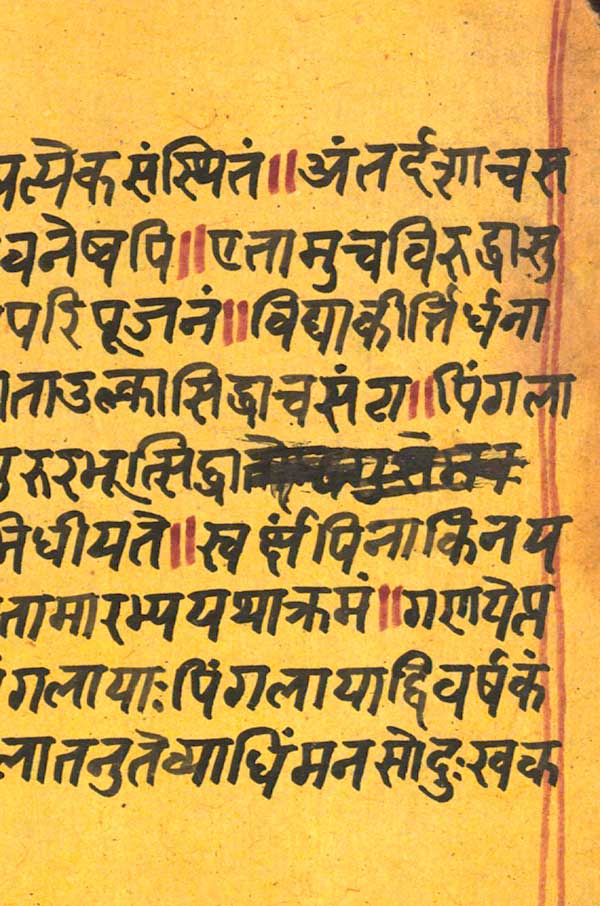 प्रत्येकसंस्पितं॥अंतर्दशाचस
वनेष्वपि॥एतामुचविरुद्धासु
परिपूजनं॥विद्याकीर्त्तिर्धना
ताउल्कासिद्धाचसंटा॥पिंगला
गुरुरभूत्सिद्धा
मिधीयते॥स्वर्क्षंपिनाकिनय
तामारभ्ययथाक्रमं॥गणयेत्त
गलायाःपिंगलायाद्दिवर्षकं
लातनुतेव्याधिंमनसोदुःखक